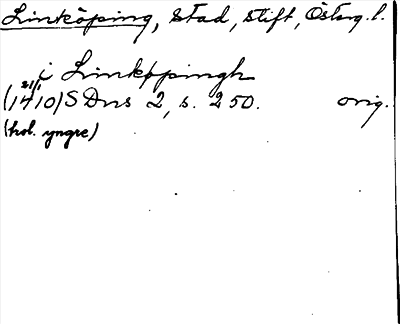 Linköping, Stad, stift, Österg. l.
i Linkøpingh
21/1
(1410) S Dns 2, s. 250. orig.
(hol. yngre)